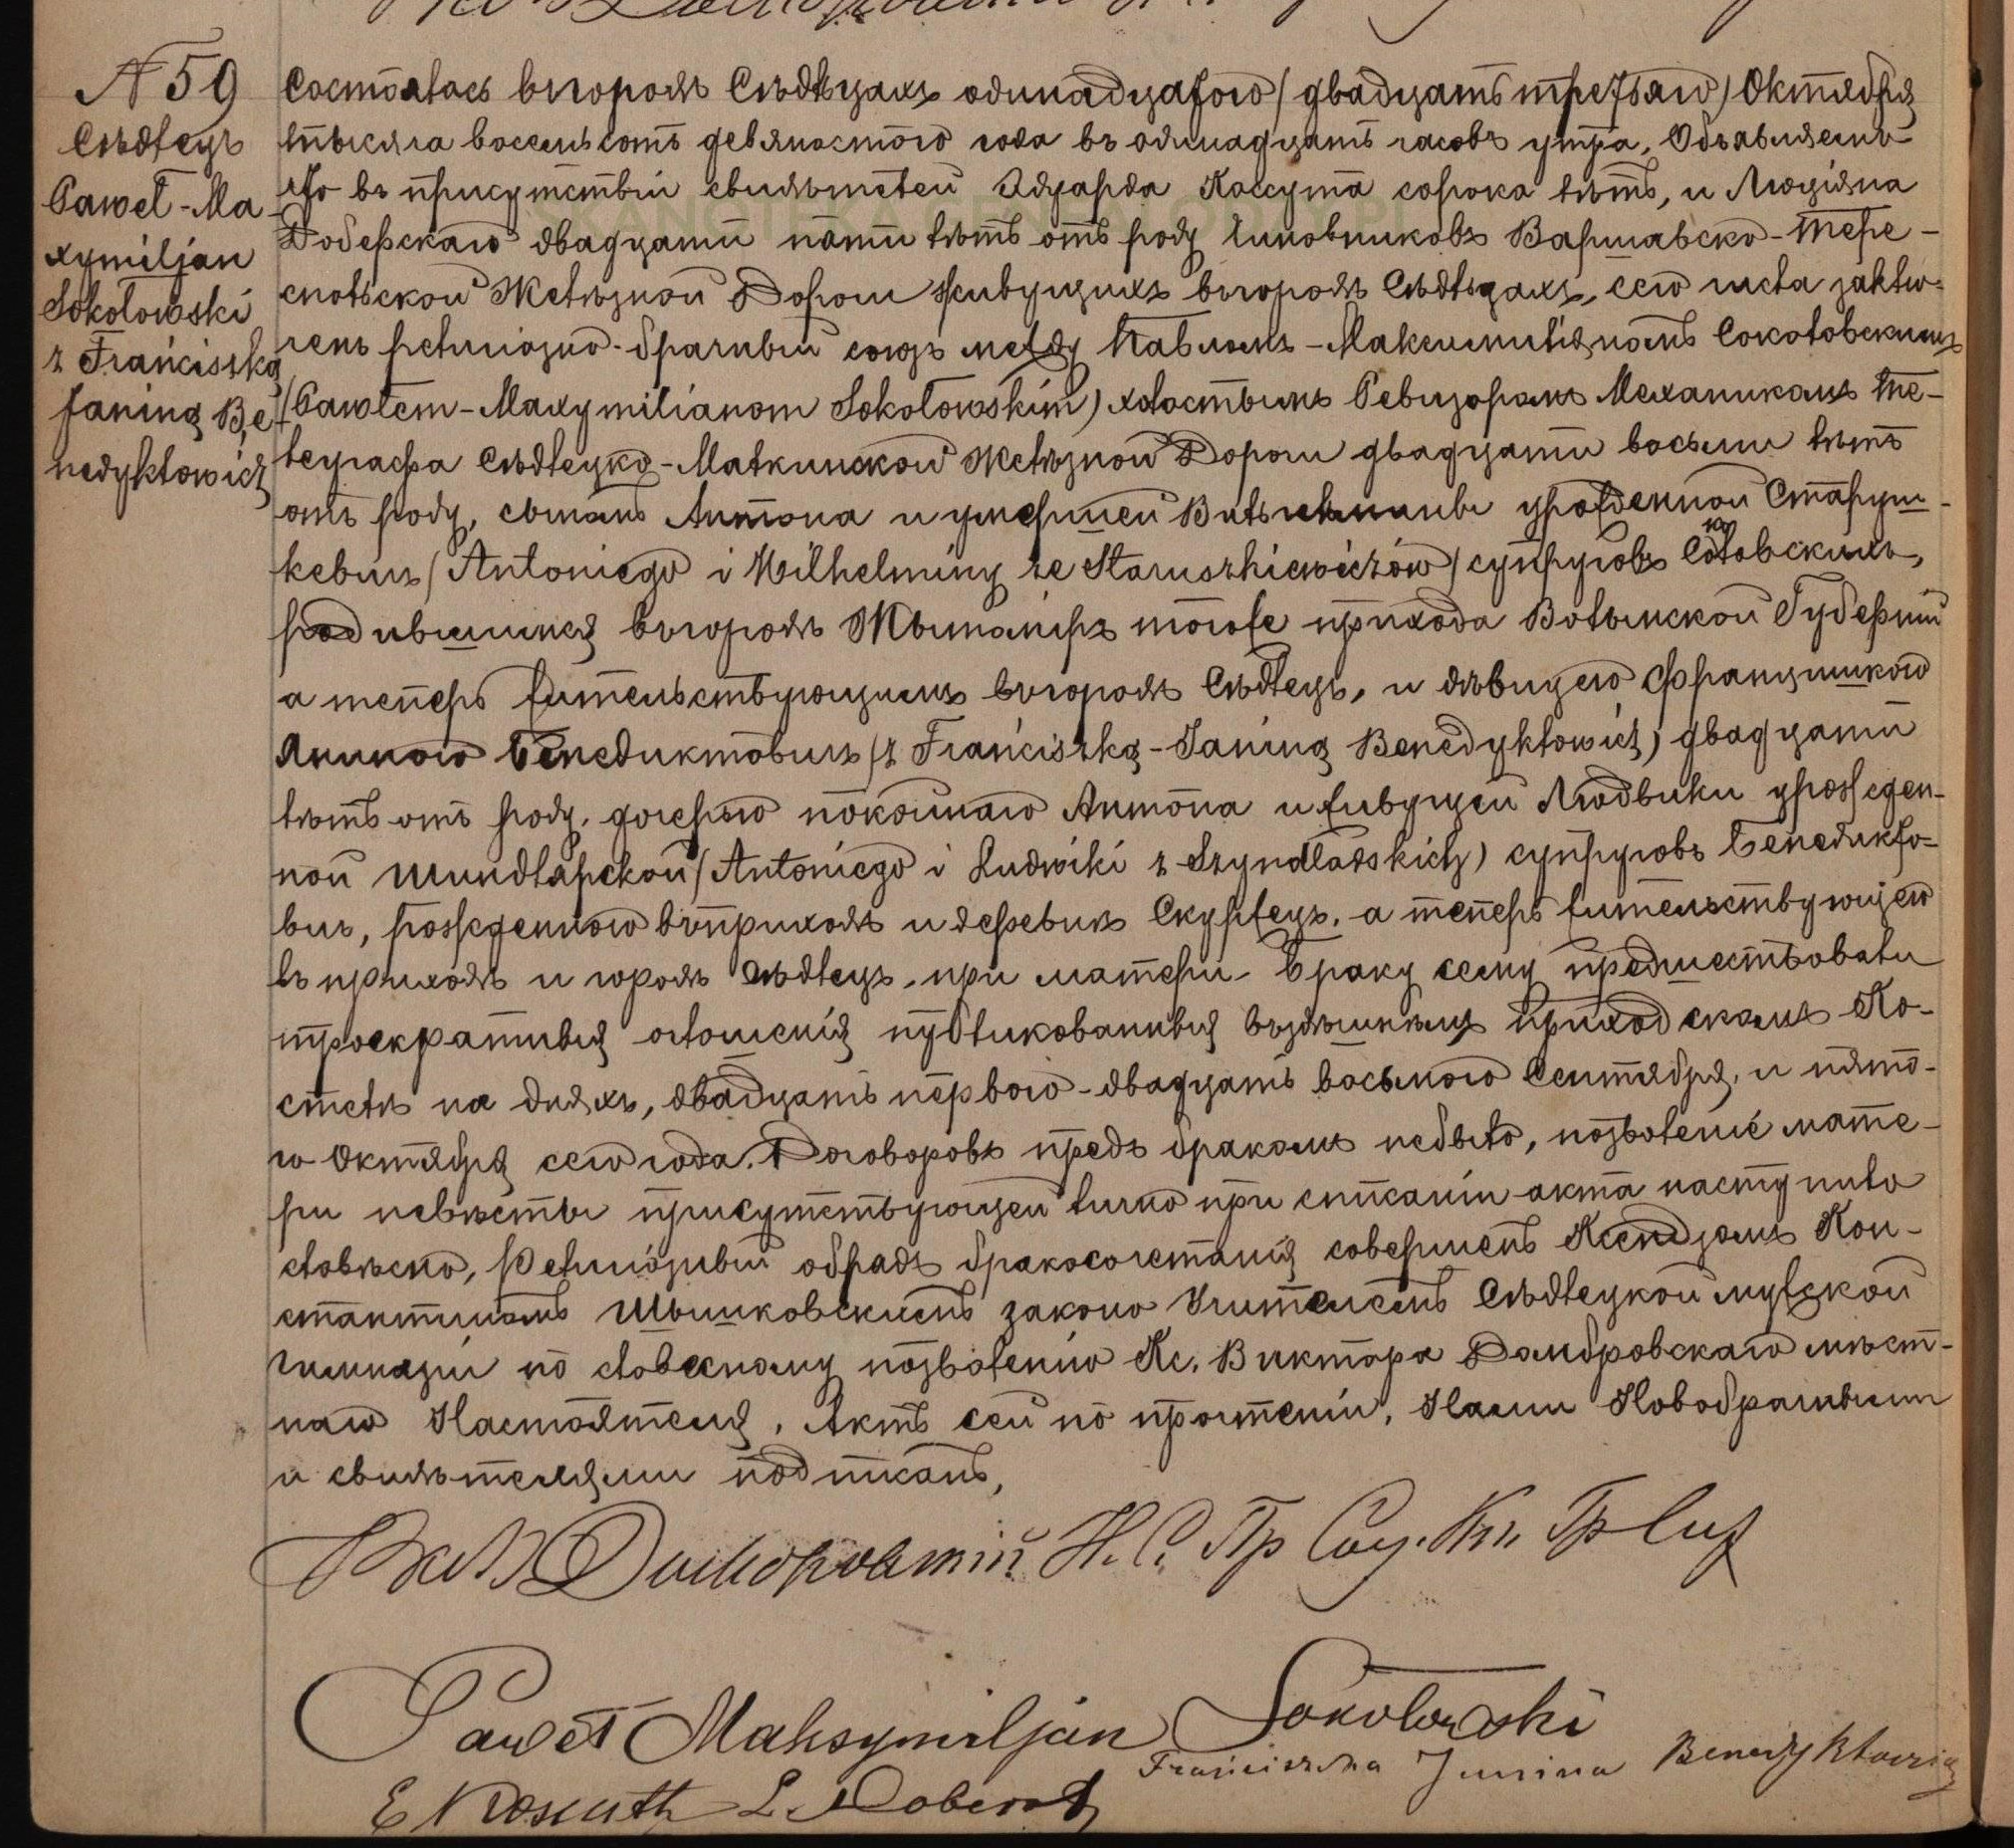 N 59
Сѣдлецъ
Paweł-Ma
xymiljan
Sokołowski
z Franciszką
Janiną Be
nedyktowicz
Состоялось въ городѣ Сѣдльцахъ одинадцатого/двадцать третьяго/Октября
тысяча восемьсотъ девяностого года въ одинадцать часовъ утра, Объявляемъ
что въ присутствіи свидѣтелей Эдуарда Коссута сорока лѣтъ, и Люціяна
Доберскаго двадцати пяти лѣтъ отъ роду Чиновниковъ Варшавско-Тере-
спольской Желѣзной Дороги живущихъ въ городѣ Сѣдльцахъ, сего числа заклю-
ченъ религіозно-брачный союзъ между Павломъ-Максимиліяномъ Соколовскимъ
(Pawłem-Maxymilianom Sokołowskim) холостымъ Ревизоромъ Механикомъ Те-
леграфа Сѣдлецко-Малкинской Желѣзной Дороги двадцати восьми лѣтъ
отъ роду, сыномъ Антона и умершей Вильгельмины урожденной Старуш-
кевичъ/Antoniego i Wilhelminy ze Staruszkiewiczów/супруговъ Соколовскихъ,
родившимся въ городѣ Житомірѣ тогоже прихода Волынской Губерніи
а теперь жительствующимъ въ городѣ Сѣдлецъ, и дѣвицею Францишкою
Яниною Бенедиктовичъ/z Franciszką-Janiną Benedyktowicz/двадцати
лѣтъ отъ роду, дочерью покойнаго Антона и живущей Людвики урожден-
ной Шиндлярской/Antoniego i Ludwiki z Szyndlarskich/супруговъ Бенедикто-
вичъ, рожденною въ приходѣ и деревнѣ Скуржецъ, а теперь жительствующею
въ приходѣ и городѣ Сѣдлецъ, при матери. Браку сему предшествовали
троекратныя оглошенія публикованныя въ здѣшнемъ приходскомъ Ко-
стелѣ на дняхъ, двадцать первого-двадцать восьмого Сентября, и пято-
го Октября сего года. Договоровъ предъ бракомъ не было, позволеніе мате-
ри невѣсты присутствующей лично при списаніи акта наступило
словѣсно, Религіозный обрядъ бракосочетанія совершенъ Ксендзомъ Кон-
стантиномъ Шышковскимъ законо Учителемъ Сѣдлецкой мужской
гимназіи по словесному позволенію Кс. Виктора Домбровскаго мѣст-
наго Настоятеля, Актъ сей по прочтеніи, Нами Новобрачными
и свидѣтелями подписанъ,
Кс В Домбровскій Н. С. Пр
Paweł Maksymiljan Sokołowski
Franciszka Janina Benedyktowicz
E Kossuth L. Doberski